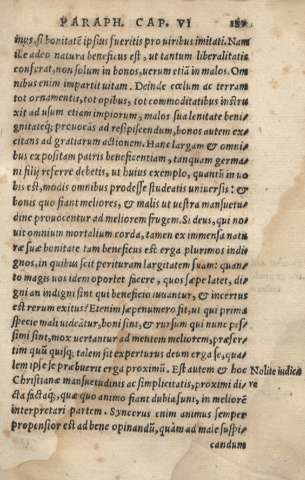 PARAPH. CAP. VI 187
inus, si bonitatẽ ipsius fueritis pro uiribus imitati. Nam
ille adeo natura beneficus est, ut tantum liberalitatis
conferat, non solum in bonos, uerum etiã in malos. Om
nibus enim impartit uitam. Deinde cœlum ac terram
tot ornamentis, tot opibus, tot commoditatibus instru
xit ad usum etiam impiorum, malos sua lenitate beni
gnitateq; prouocãs ad resipiscendum, bonos autem ex
citans ad gratiarum actionem. Hanc largam & omni
bus expositam patris beneficentiam, tanquam germa
ni filij referre debetis, ut huius exemplo, quantũ in uo
bis est, modis omnibus prodesse studeatis uniuersis: &
bonis quo fiant meliores, & malis ut uestra mansuetu
dine prouocentur ad meliorem frugem. Si deus, qui no
uit omnium mortalium corda, tamen ex immensa natu
ræ suæ bonitate tam beneficus est erga plurimos indi
gnos, in quibus scit perituram largitatem suam: quan
to magis uos idem oportet facere, quos sæpe latet, di
gni an indigni sint qui beneficio iuuantur, & incertus
est rerum exitus? Etenim sæpenumero fit, ut qui prima
specie mali uideãtur, boni sint, & rursum qui nunc pes
simi sint, mox uertantur ad mentem meliorem, præser
tim quũ quisq; talem sit experturus deum erga se, qua
lem ipse se præbuerit erga proximũ. Est autem & hoc Nolite iudica
Christianæ mansuetudinis ac simplicitatis, proximi di re
cta factaq;, quæ quo animo fiant dubia sunt, in meliorẽ
interpretari partem. Syncerus enim animus semper
propensior est ad bene opinandũ, quàm ad male suspi
candum